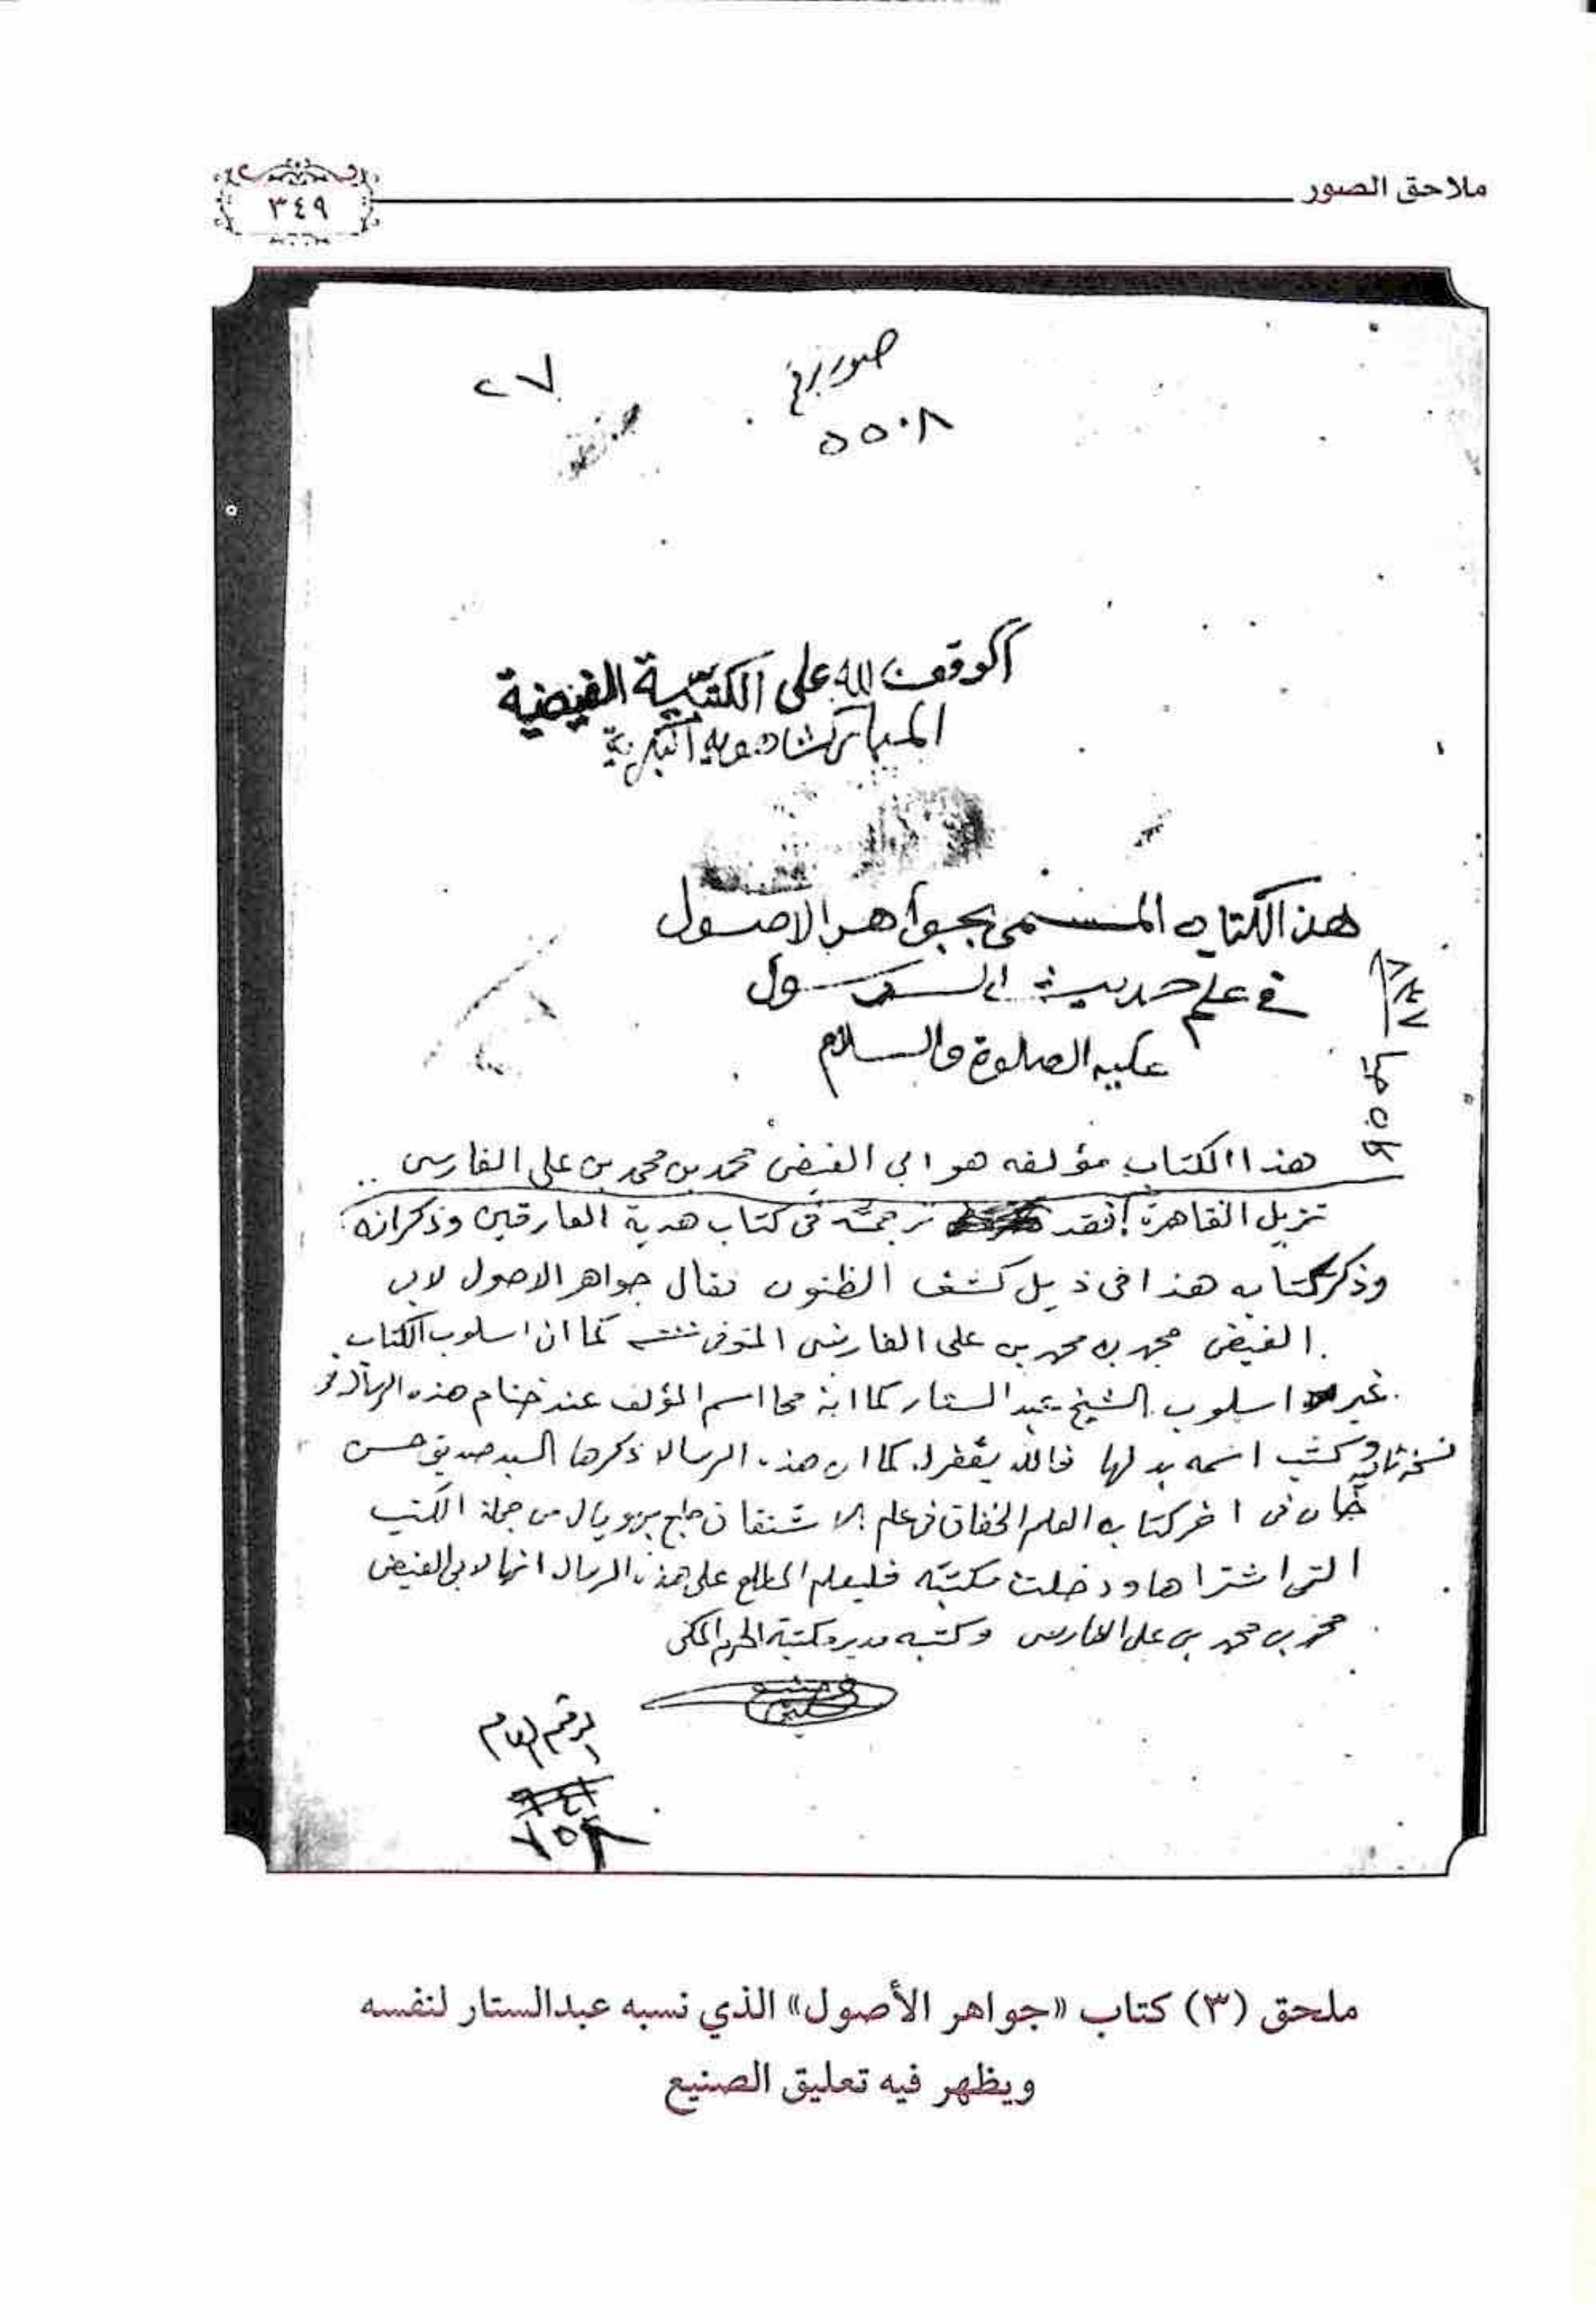 ملاحق الصور
٣٤٩
صور برقم
٥٥٠٨
٢٧
الوقف لله على الكتبية الفيضية
المباركشاهوية البكرية
هذا الكتاب المسمى بجواهر الاصول
في علم حديث الرسول
عليه الصلوة والسلام
هذا الكتاب مؤلفه هو ابي الفيض محمد بن محمد بن علي الفارسي
نزيل القاهرة فقد ترجمته فى كتاب هدية العارفين وذكرانه
وذكر كتابه هذا فى ذيل كشف الظنون فقال جواهر الاصول لابي
الفيض محمد بن محمد بن على الفارسى المتوفى سنة كما ان اسلوب الكتاب
غير اسلوب الشيخ عبد الستار كما انه محا اسم المؤلف عند ختام هذه الرسالة فى
نسخة ثانية وكتب اسمه بدلها فالله يغفر له كما ان هذه الرسالة ذكرها السيد صديق حسن
خان فى اخر كتابه العلم الخفاق فى علم الاشتقاق من جملة الكتب
التى اشتراها ودخلت مكتبته فليعلم المطلع على هذه الرسالة انها لابي الفيض
محمد بن محمد بن على الفارسى وكتبه مدير مكتبة الحرم المكى
الرقم العام
٧٥٨
ملحق (٣) كتاب «جواهر الأصول» الذي نسبه عبدالستار لنفسه
ويظهر فيه تعليق الصنيع